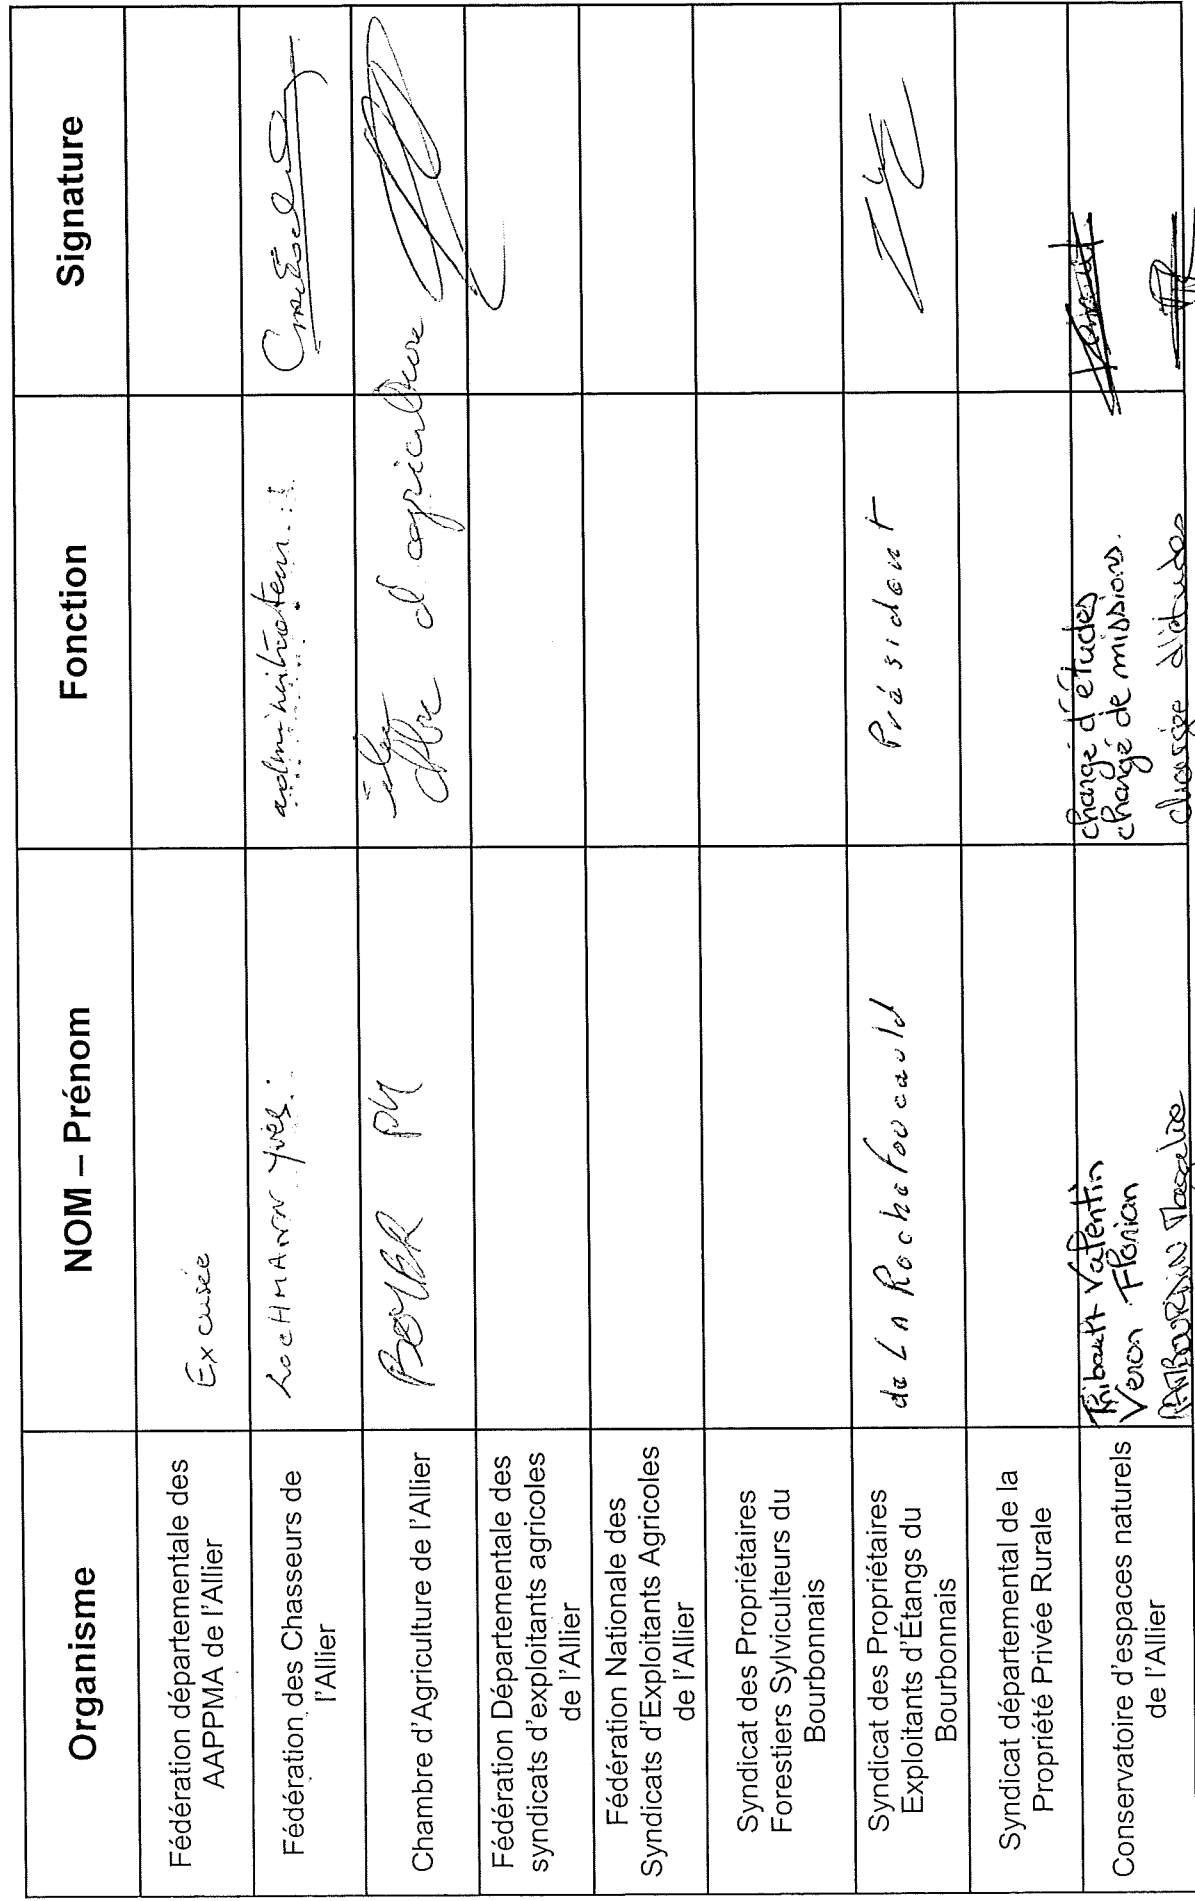 Organisme
NOM – Prénom
Fonction
Signature
Fédération départementale des
AAPPMA de l'Allier
Excusée
Fédération des Chasseurs de
l'Allier
LocHMANN Yves.
administrateur
Chambre d'Agriculture de l'Allier
BOYER PM
élu
chbre d'agriculture
Fédération Départementale des
syndicats d'exploitants agricoles
de l'Allier
Fédération Nationale des
Syndicats d'Exploitants Agricoles
de l'Allier
Syndicat des Propriétaires
Forestiers Sylviculteurs du
Bourbonnais
Syndicat des Propriétaires
Exploitants d'Étangs du
Bourbonnais
de LA Rochefoucauld
Président
Syndicat départemental de la
Propriété Privée Rurale
Conservatoire d'espaces naturels
de l'Allier
Thibault Valentin
Veron Florian
chargé d'études
chargé de missions.
chargée d'études